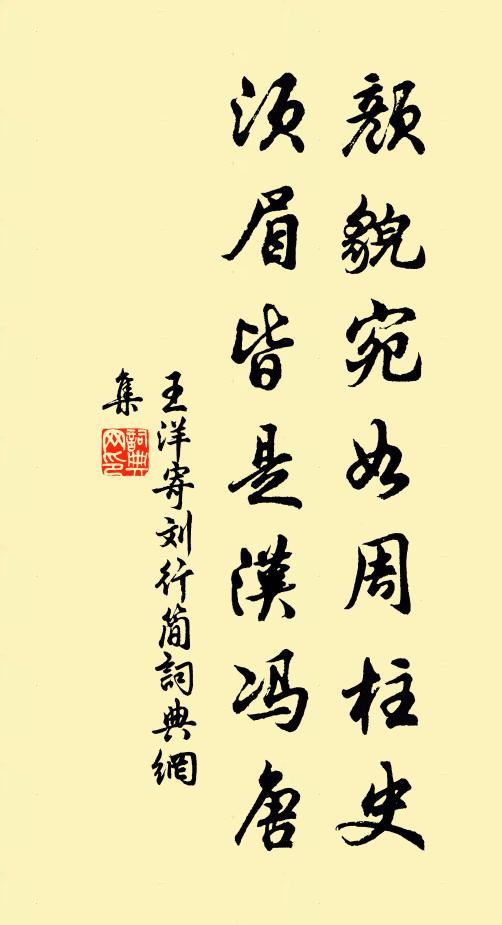 颜貌宛如周柱史
须眉皆是漢冯唐
王洋寄刘行简詞典網
集
詞典网印